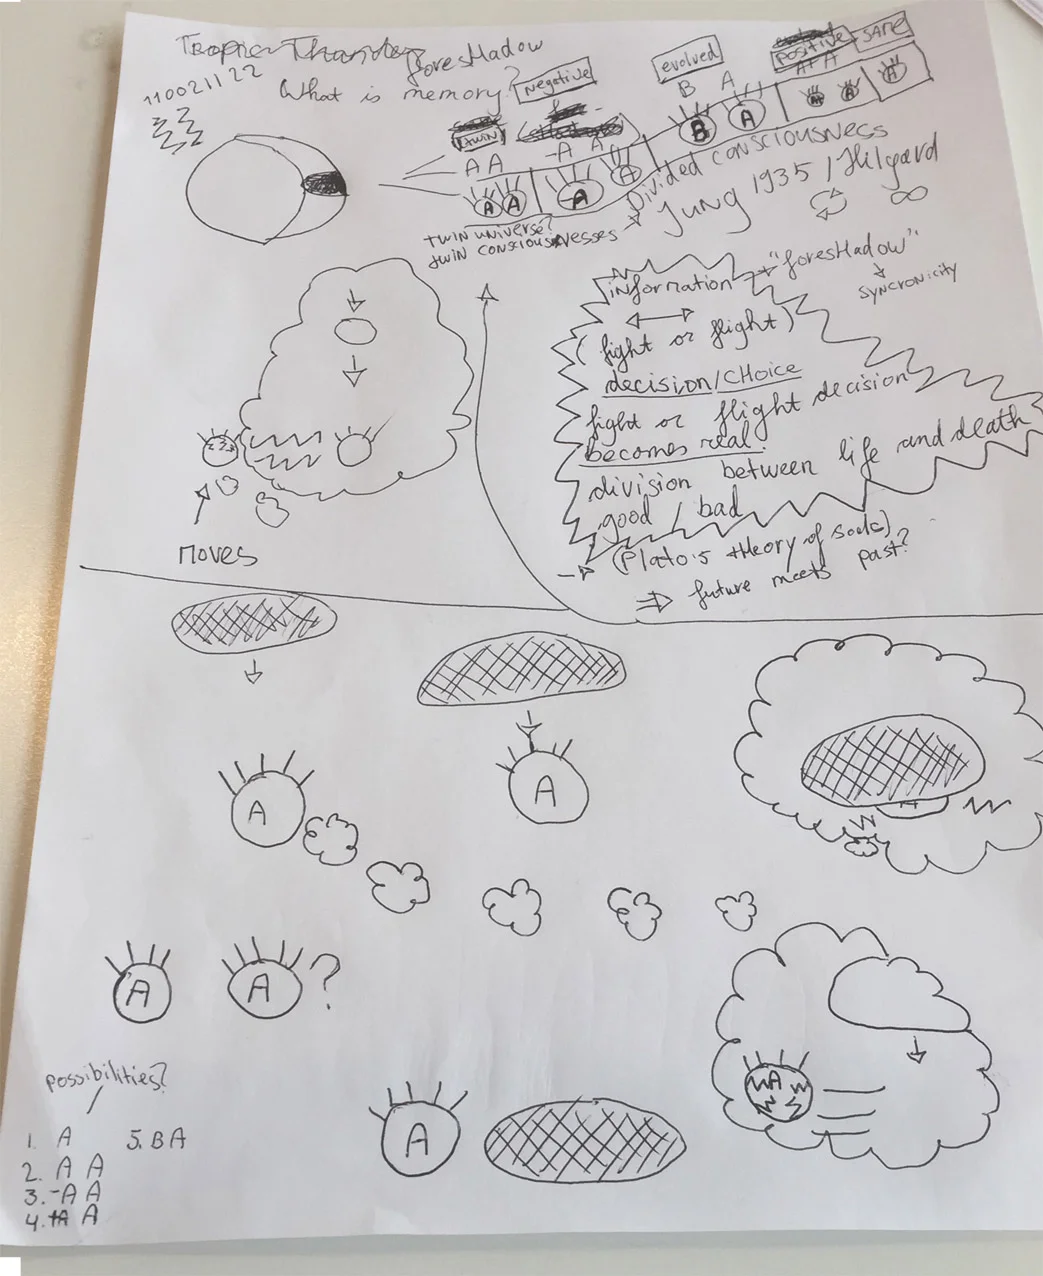 Tropic Thunder
foresHadow
110021122
What is memory?
negative
evolved
positive
SAME
twin
A A
-A A
B A
A+ A
A A
A
A
B
A
A+
A
A
twin universe?
twin consciousnesses
Divided consciousness
Jung 1935 / Hilgard
∞
information → "foresHadow"
syncronicity
(fight or flight)
decision/CHoice
fight or flight decision
becomes real.
division between life and death
good / bad
→ (Plato's theory of souls)
⇒ future meets past?
moves
A
A
A
A
A ?
A
A
possibilities?
1. A
2. A A
3. -A A
4. +A A
5. B A